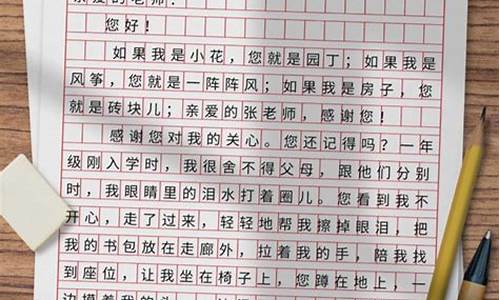 亲爱的老师：
您好！
如果我是小花，您就是园丁；如果我是
风筝，您就是一阵阵风；如果我是房子，您
就是砖块儿；亲爱的张老师，感谢您！
感谢您对我的关心。您还记得吗？一年
级刚入学时，我很舍不得父母，跟他们分别
时，我眼睛里的泪水打着圈儿。您看到我不
开心，走了过来，轻轻地帮我擦掉眼泪，把
我的书包放在走廊外，拉着我的手，陪我找
到座位，让我坐在椅子上，您蹲在地上，一
边摸着我的头